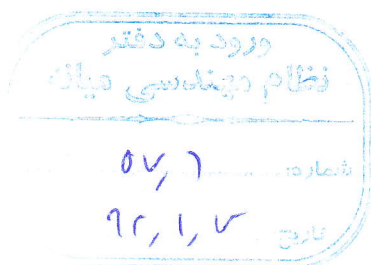 ورود به دفتر
نظام مهندسی میانه
شماره: ۵۷٫۶
تاریخ ۹۲٫۱٫۷